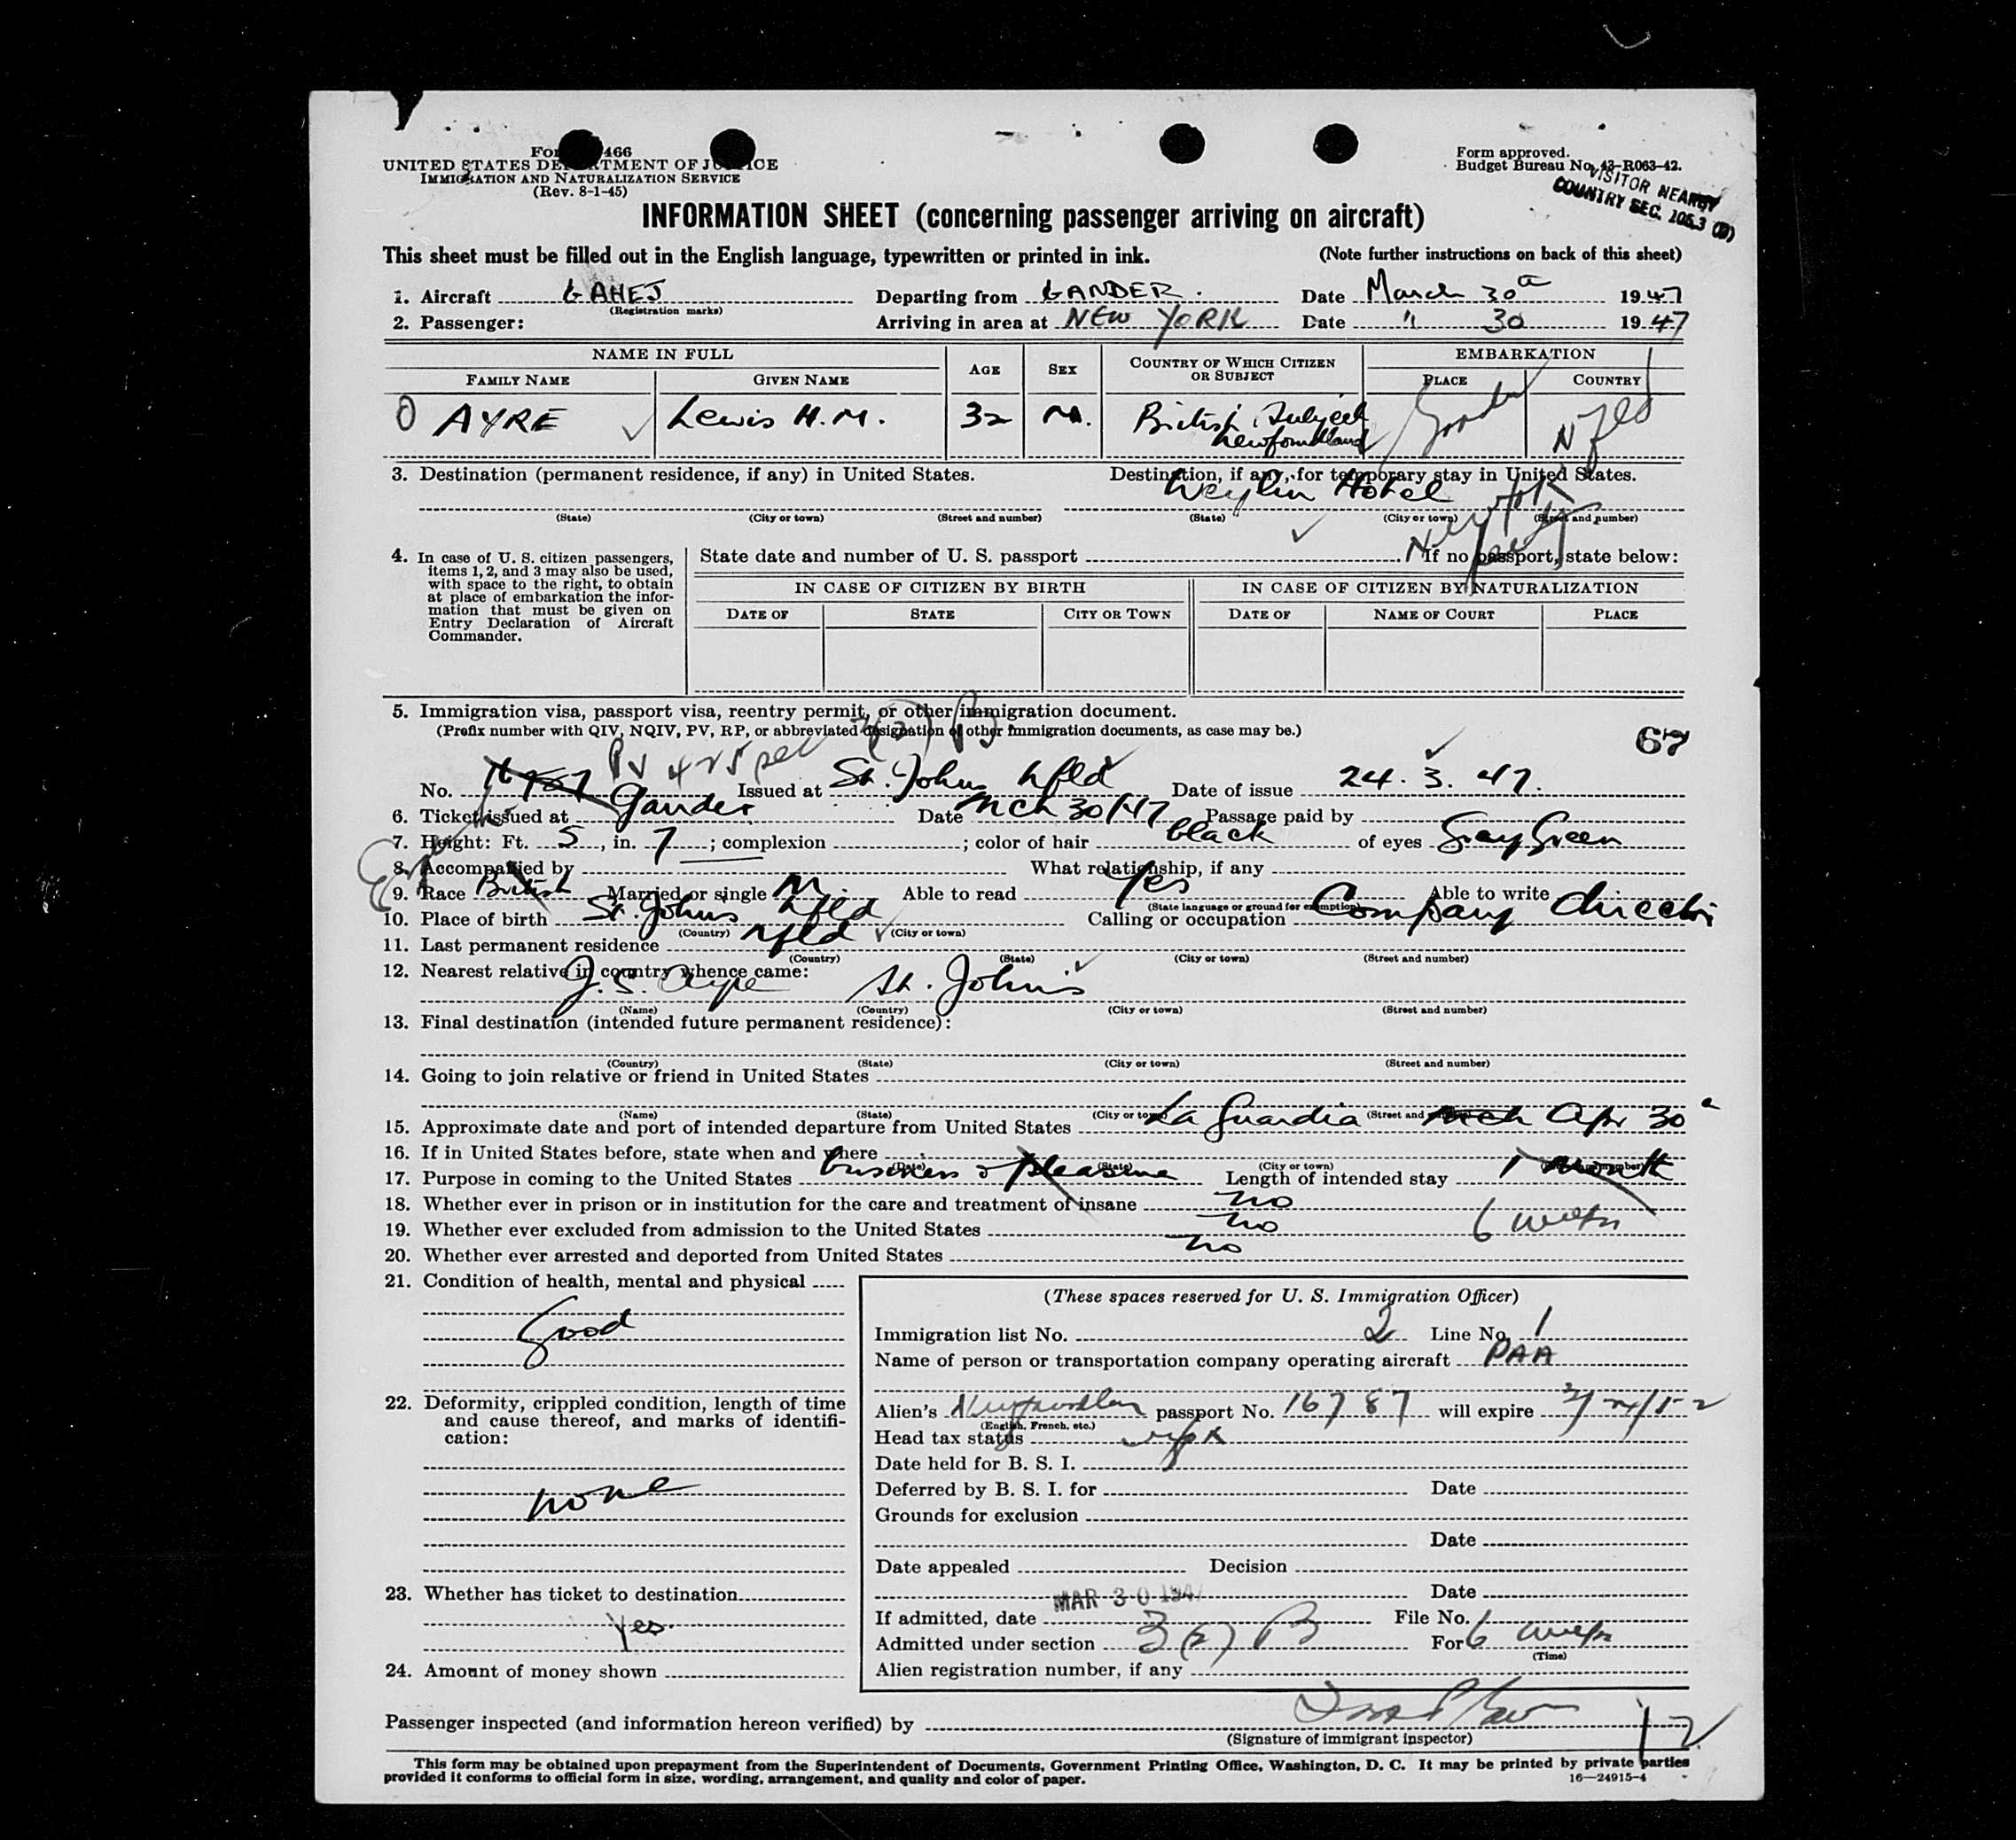 Form 466
UNITED STATES DEPARTMENT OF JUSTICE
IMMIGRATION AND NATURALIZATION SERVICE
(Rev. 8-1-45)
Form approved.
Budget Bureau No. 43-R063-42.
VISITOR NEARBY
COUNTRY SEC.
INFORMATION SHEET (concerning passenger arriving on aircraft)
This sheet must be filled out in the English language, typewritten or printed in ink. (Note further instructions on back of this sheet)
1. Aircraft GAHEJ Departing from GANDER. Date March 30 1947
(Registration marks)
2. Passenger: Arriving in area at NEW YORK Date " 30 1947
NAME IN FULL AGE SEX COUNTRY OF WHICH CITIZEN OR SUBJECT EMBARKATION
FAMILY NAME GIVEN NAME PLACE COUNTRY
AYRE Lewis H.M. 32 M. British Subject Newfoundland Gander Nfld
3. Destination (permanent residence, if any) in United States. Destination, if any, for temporary stay in United States.
Weylin Hotel New York
(State) (City or town) (Street and number) (State) (City or town) (Street and number)
4. In case of U. S. citizen passengers, items 1, 2, and 3 may also be used, with space to the right, to obtain at place of embarkation the information that must be given on Entry Declaration of Aircraft Commander.
State date and number of U. S. passport . If no passport, state below:
IN CASE OF CITIZEN BY BIRTH IN CASE OF CITIZEN BY NATURALIZATION
DATE OF STATE CITY OR TOWN DATE OF NAME OF COURT PLACE
5. Immigration visa, passport visa, reentry permit, or other immigration document. 3(2) B
(Prefix number with QIV, NQIV, PV, RP, or abbreviated designation of other immigration documents, as case may be.) 67
No. PV 425 Issued at St. Johns Nfld Date of issue 24. 3. 47.
6. Ticket issued at Gander Date Mch 30/47 Passage paid by
7. Height: Ft. 5, in. 7; complexion ; color of hair black of eyes Gray Green
8. Accompanied by What relationship, if any
9. Race British Married or single M. Able to read Yes Able to write
(State language or ground for exemption)
10. Place of birth St. Johns Nfld Calling or occupation Company Director
(Country) (City or town)
11. Last permanent residence Nfld
(Country) (State) (City or town) (Street and number)
12. Nearest relative in country whence came:
J.S. Ayre St. Johns
(Name) (Country) (City or town) (Street and number)
13. Final destination (intended future permanent residence):
(Country) (State) (City or town) (Street and number)
14. Going to join relative or friend in United States
(Name) (State) (City or town) (Street and number)
15. Approximate date and port of intended departure from United States La Guardia Mch Apr 30
16. If in United States before, state when and where
(Date) (State) (City or town) (Street and number)
17. Purpose in coming to the United States business & pleasure Length of intended stay 1 month
18. Whether ever in prison or in institution for the care and treatment of insane no
19. Whether ever excluded from admission to the United States no 6 weeks
20. Whether ever arrested and deported from United States no
21. Condition of health, mental and physical
good
22. Deformity, crippled condition, length of time and cause thereof, and marks of identification:
none
23. Whether has ticket to destination
Yes.
24. Amount of money shown
(These spaces reserved for U. S. Immigration Officer)
Immigration list No. 2 Line No. 1
Name of person or transportation company operating aircraft PAA
Alien's Newfoundland passport No. 16787 will expire
(English, French, etc.)
Head tax status
Date held for B. S. I.
Deferred by B. S. I. for Date
Grounds for exclusion
Date
Date appealed Decision
Date
If admitted, date MAR 30 1947 File No.
Admitted under section 3(2) B For 6 weeks
(Time)
Alien registration number, if any
Passenger inspected (and information hereon verified) by
(Signature of immigrant inspector)
This form may be obtained upon prepayment from the Superintendent of Documents, Government Printing Office, Washington, D. C. It may be printed by private parties
provided it conforms to official form in size, wording, arrangement, and quality and color of paper. 16—24915-4